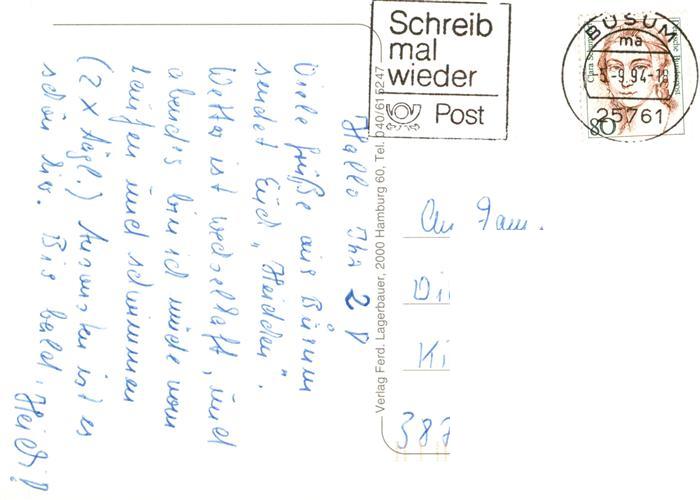 Hallo Ihr 2!
Viele Grüße aus Büsum
sendet Euch "Heidchen".
Wetter ist wechselhaft, und
abends bin ich müde vom
Laufen und schwimmen
(2 x tägl.) Ansonsten ist es
schön hier. Bis bald, Heidi!
Verlag Ferd. Lagerbauer, 2000 Hamburg 60, Tel. 040/615247
Schreib
mal
wieder
Post
BÜSUM
ma
-9.94-18
25761
Clara Schumann
Deutsche Bundespost
80
An Fam.
Di
Ki
387